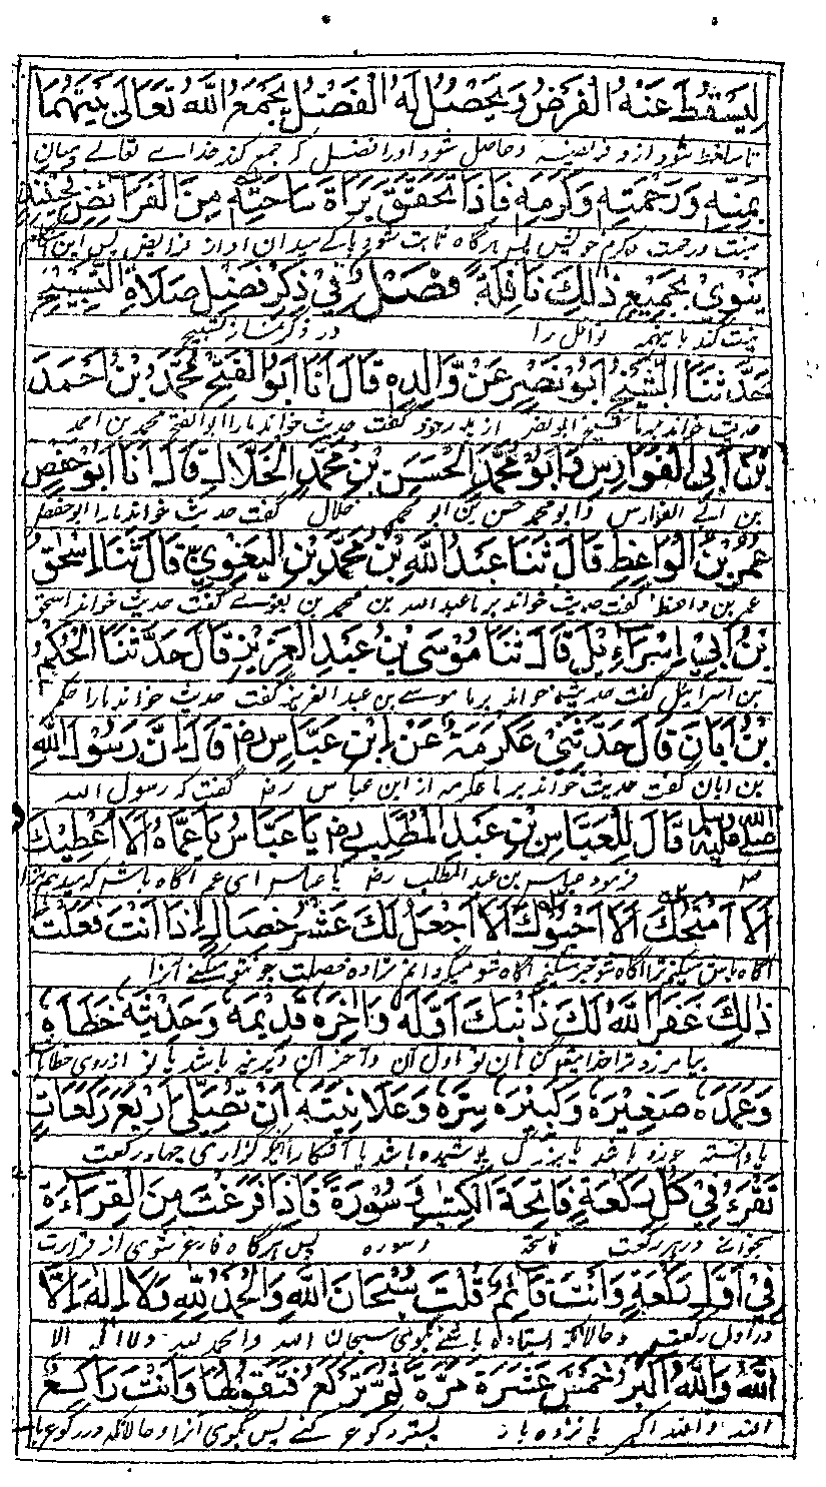 لِيَسْقُطَ عَنْهُ الْفَرْضُ وَيَحْصُلُ لَهُ الْفَضْلُ يَجْمَعُ اللّٰهُ تَعَالٰى بَيْنَهُمَا
تا ساقط شود ازو فریضه و حاصل شود او را فضل که جمع کند خداے تعالے میان
بِمَنِّهِ وَرَحْمَتِهِ وَكَرَمِهِ فَاِذَا تَحَقَّقَ بَرَاةَ سَاحَتِهِ مِنَ الْفَرَائِضِ فَحِيْنَئِذٍ
بمنت ورحمت و کرم خویش پس هرگاه ثابت شود پاکے میدان او از فرایض پس این هنگام
يَنْوِىْ بِجَمِيْعِ ذٰلِكَ نَافِلَةً فَصْلٌ فِيْ ذِكْرِ فَضْلِ صَلَاةِ التَّسْبِيْحِ
نیت کند باینهمه نوافل را در ذکر نماز تسبیح
حَدَّثَنَا الشَّيْخُ اَبُوْ نَصْرٍ عَنْ وَّالِدِهِ قَالَ اَنَا اَبُو الْفَتْحِ مُحَمَّدُ بْنُ اَحْمَدَ
حدیث خواند بر ما شیخ ابو نصر از پدر خود گفت حدیث خواند ما را ابو الفتح محمد بن احمد
بْنِ اَبِى الْفَوَارِسِ وَاَبُوْ مُحَمَّدٍ الْحَسَنِ بْنِ مُحَمَّدٍ الْخَلَّالِ قَالَ اَنَا اَبُوْ حَفْصٍ
بن ابے الفوارس و ابو محمد حسن بن ابو محمد خلال گفت حدیث خواند ما را ابو حفص
عُمَرُ بْنُ الْوَاعِظِ قَالَ ثَنَا عَبْدُ اللّٰهِ بْنُ مُحَمَّدِ بْنِ الْبَغَوِيِّ قَالَ ثَنَا اِسْحٰقُ
عمر بن واعظ گفت حدیث خواند بر ما عبد الله بن محمد بن بغوے گفت حدیث خواند اسحق
بْنُ اَبِيْ اِسْرَاءِيْلَ قَالَ ثَنَا مُوْسَى بْنُ عَبْدِ الْعَزِيْزِ قَالَ حَدَّثَنَا الْحَكَمُ
بن اسرائیل گفت حدیث خواند بر ما موسے بن عبد العزیز گفت حدیث خواند ما را حکم
بْنُ اَبَانَ قَالَ حَدَّثَنِيْ عِكْرَمَةُ عَنْ اِبْنِ عَبَّاسٍ رض قَالَ اِنَّ رَسُوْلَ اللّٰهِ
بن ابان گفت حدیث خواند بر ما عکرمه از ابن عباس رض گفت که رسول الله
صلى الله عليه وسلم قَالَ لِلْعَبَّاسِ بْنِ عَبْدِ الْمُطَّلِبِ رض يَا عَبَّاسُ يَا عَمَّاهُ اَلَا اُعْطِيْكَ
ص فرمود عباس بن عبد المطلب رض یا عباس ای عم آگاه باش که میدهم ترا
اَلَا اَمْنَحُكَ اَلَا اَحْبُوْكَ اَلَا اَجْعَلُ لَكَ عَشْرَ خِصَالٍ اِذَا اَنْتَ فَعَلْتَ
آگاه باش میکنم ترا آگاه شو خبر میکنم آگاه شو میگردانم ترا ده خصلت چو تو میکنے آنرا
ذٰلِكَ غَفَرَ اللّٰهُ لَكَ ذَنْبَكَ اَوَّلَهُ وَاٰخِرَهُ قَدِيْمَهُ وَحَدِيْثَهُ خَطَاَهُ
بیامرزد ترا خدا مینو گناهان تو اول آن و آخر آن دیرینه باشد یا نو از روی خطا یا
وَعَمَدَهُ صَغِيْرَهُ وَكَبِيْرَهُ سِرَّهُ وَعَلَانِيَتَهُ اَنْ تُصَلِّيَ اَرْبَعَ رَكَعَاتٍ
یا دانسته خورد باشد یا بزرگ پوشیده باشد یا آشکارا اینکه گزاری چهار رکعت
تَقْرَءُ فِيْ كُلِّ رَكْعَةٍ فَاتِحَةَ الْكِتٰبِ وَ سُوْرَةً فَاِذَا فَرَغْتَ مِنَ الْقِرَآءَةِ
بخوانے در هر رکعت فاتحه و سوره پس هرگاه فارغ شوی از قراءت
فِيْ اَوَّلِ رَكْعَةٍ وَاَنْتَ قَائِمٌ قُلْتَ سُبْحَانَ اللّٰهِ وَالْحَمْدُ لِلّٰهِ وَلَا اِلٰهَ اِلَّا
در اول رکعت و حالانکه استاده باشے بگوی سبحان الله والحمد لله ولا اله الا
اللّٰهُ وَاللّٰهُ اَكْبَرُ خَمْسَ عَشَرَةَ مَرَّةً ثُمَّ تَرْكَعُ فَتَقُوْلُهَا وَاَنْتَ رَاكِعٌ
الله والله اکبر پانزده بار پستر رکوع کنے پس بگوی آنرا و حالانکه در رکوع با